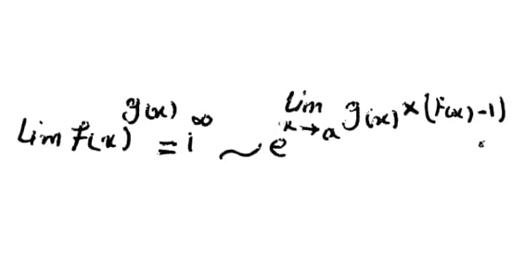 lim f(x)^g(x) = 1^∞ ~ e^lim x→a g(x)×(f(x)-1)